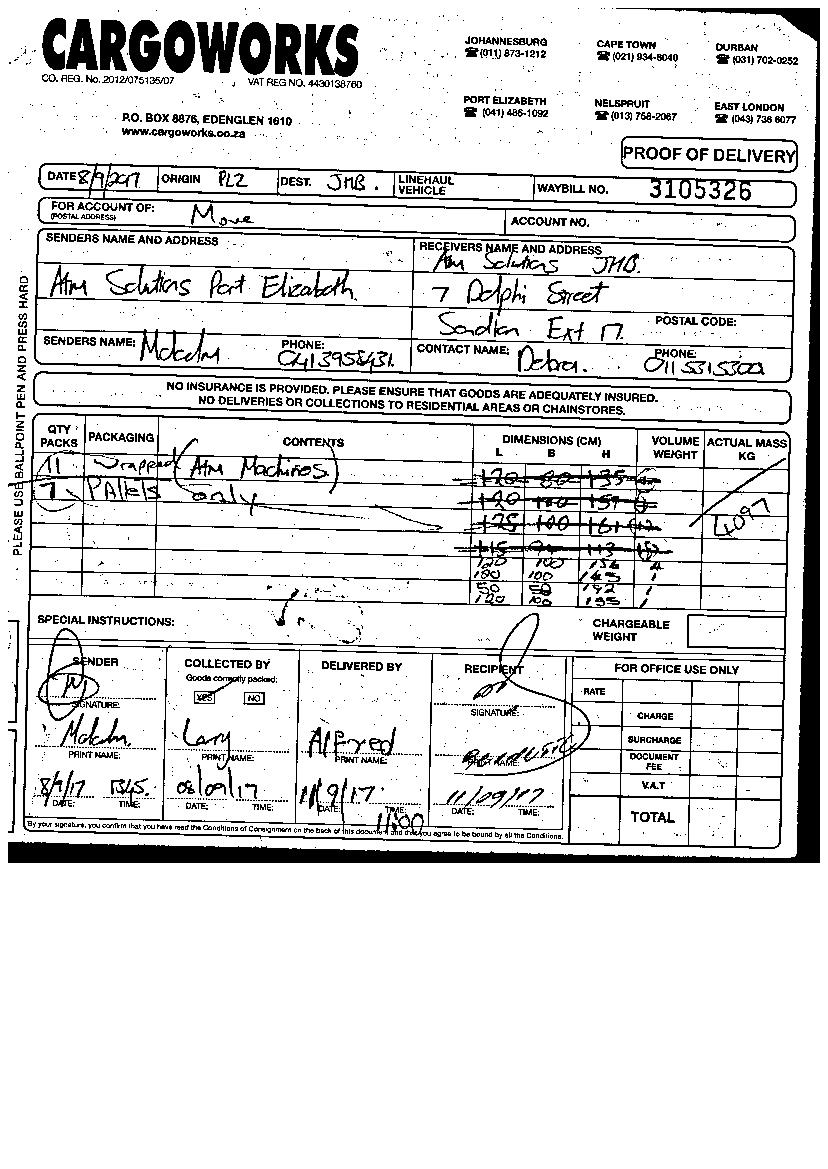 CARGOWORKS
CO. REG. No. 2012/075135/07 VAT REG NO. 4430138760
P.O. BOX 8876, EDENGLEN 1610
www.cargoworks.co.za
JOHANNESBURG CAPE TOWN DURBAN
☎ (011) 873-1212 ☎ (021) 934-8040 ☎ (031) 702-0252
PORT ELIZABETH NELSPRUIT EAST LONDON
☎ (041) 486-1092 ☎ (013) 758-2067 ☎ (043) 736 6077
PROOF OF DELIVERY
DATE 8/9/2017 ORIGIN PLZ DEST. JHB. LINEHAUL VEHICLE WAYBILL NO. 3105326
FOR ACCOUNT OF: Move
(POSTAL ADDRESS) ACCOUNT NO.
SENDERS NAME AND ADDRESS RECEIVERS NAME AND ADDRESS
Atm Solutions JHB.
Atm Solutions Port Elizabeth 7 Delphi Street
Ext 17. POSTAL CODE:
SENDERS NAME: Malcolm PHONE: 0413958431. CONTACT NAME: Debra. PHONE: 0115315300
PLEASE USE BALLPOINT PEN AND PRESS HARD
NO INSURANCE IS PROVIDED. PLEASE ENSURE THAT GOODS ARE ADEQUATELY INSURED.
NO DELIVERIES OR COLLECTIONS TO RESIDENTIAL AREAS OR CHAINSTORES.
QTY PACKS PACKAGING CONTENTS DIMENSIONS (CM) VOLUME WEIGHT ACTUAL MASS KG
L B H
11 Wrapped (Atm Machines) 120 80 135
7 Pallets only 120 100 157
125 100 161
4097
120 100
100
50 50 192 1
120 100 155 1
SPECIAL INSTRUCTIONS: CHARGEABLE WEIGHT
SENDER COLLECTED BY DELIVERED BY RECIPIENT FOR OFFICE USE ONLY
Goods correctly packed:
YES NO
RATE
SIGNATURE: SIGNATURE:
CHARGE
Malcolm Lary Alfred
SURCHARGE
PRINT NAME: PRINT NAME: PRINT NAME: PRINT NAME:
DOCUMENT FEE
8/9/17 1345. 08/09/17 11/9/17 11/09/17
V.A.T
DATE: TIME: DATE: TIME: DATE: TIME: DATE: TIME:
11:00
TOTAL
By your signature, you confirm that you have read the Conditions of Consignment on the back of this document and that you agree to be bound by all the Conditions.